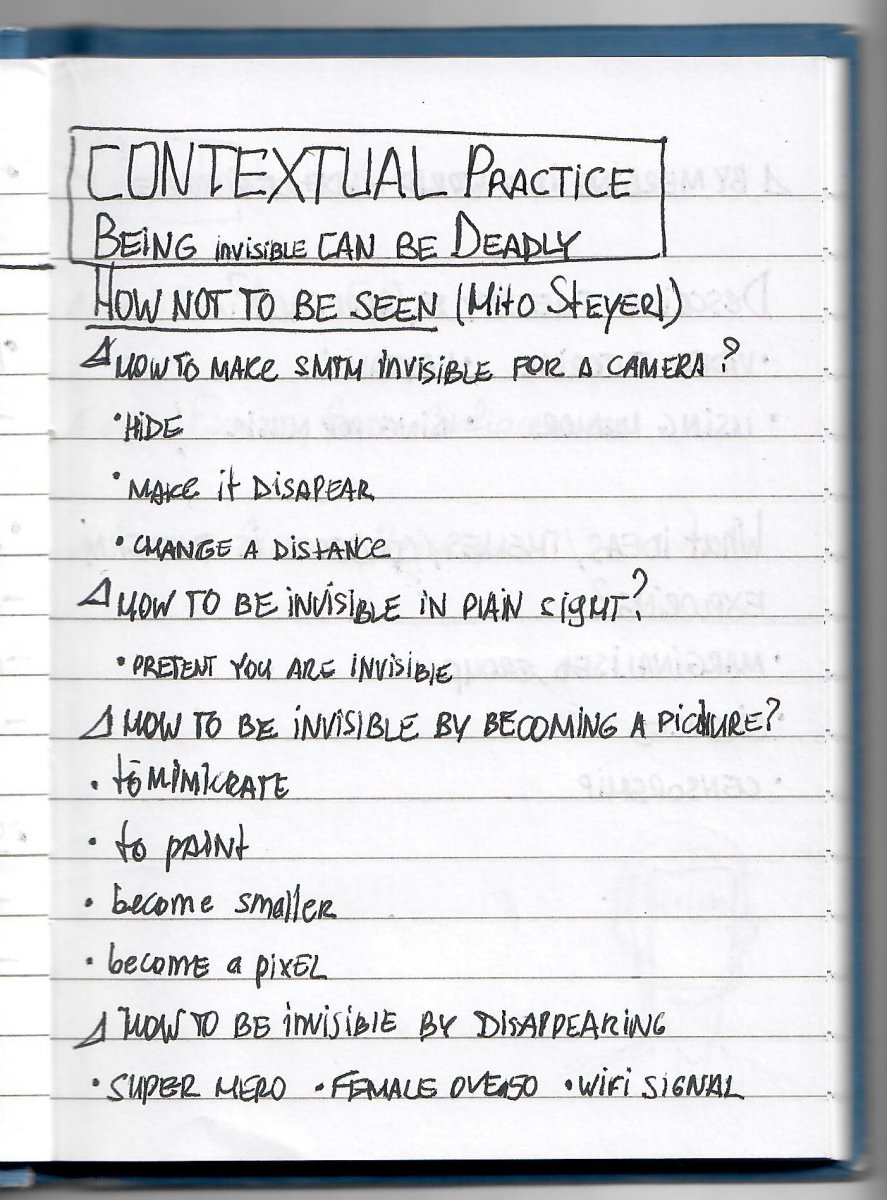 CONTEXTUAL PRACTICE
BEING invisiBLE CAN BE DEADLY
HOW NOT TO BE SEEN (Hito StEYERl)
HOW TO MAKE SMTH INVISIBLE FOR A CAMERA?
• HIDE
• MAKE it DISAPEAR
• CHANGE A DISTANCE
HOW TO BE INVISIBLE IN PlAIN SigHT?
• PRETENT YOU ARE INVISIBLE
HOW TO BE INVISIBLE BY BECOMING A PICTURE?
• to MIMICRATE
• to PAINt
• become smaller
• become a pixEL
HOW TO BE iNVISIBLE BY DISAPPEARING
• SUPER HERO • FEMALE OVER 50 • WiFi SiGNAL